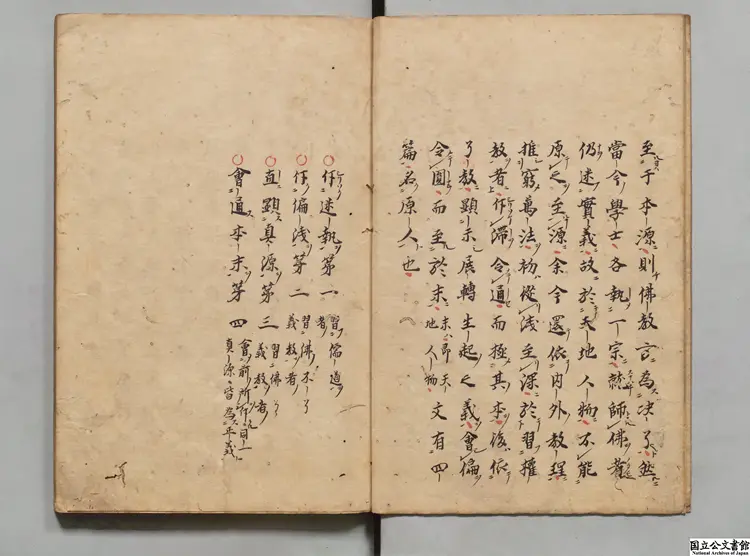 至于本源則佛教言為决了然
當今學士各執一宗就師佛者
仍迷實義故於天地人物不能
原之至源余今還依内外教理
推窮萬法初從淺至深於習權
教者斥滯令通而極其本後依
了教顯示展轉生起之義會偏
令圓而至於末 末即天地人物 文有四
篇名原人也
○斥迷執第一 習儒道者
○斥偏淺第二 習佛不了義教者
○直顯真源第三 習佛了義教者
○會通本末第四 會前所斥同一真源皆為正義
国立公文書館
National Archives of Japan